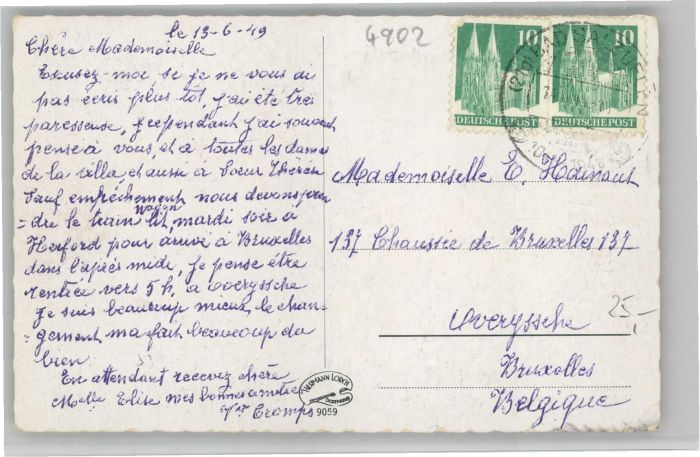 le 13-6-49
4902
Chère Mademoiselle
Excusez-moi se je ne vous ai
pas ecris plus tôt, j'ai été très
paresseuse, cependant j'ai souvent
pense a vous, et a toutes les dames
de la villa, et aussi a Soeur
Sauf empêchement nous devons pren
= dre le train wagon lit, mardi soir a
Herford pour arrivé a Bruxelles
dans l'après midi, je pense être
rentrée vers 5 h, a overyssche
je suis beaucoup mieux, le chan-
= gement ma fait beaucoup du
bien.
En attendant recevez chère
Melle Elise mes bonnes amitiés
Cromps
10 10
DEUTSCHE POST DEUTSCHE POST
BAD SALZ
Mademoiselle E. Hainaut
137 Chaussée de Bruxelles 137
Overyssche
Bruxelles
Belgique
25,-
HERMANN LORCH
DORTMUND
9059